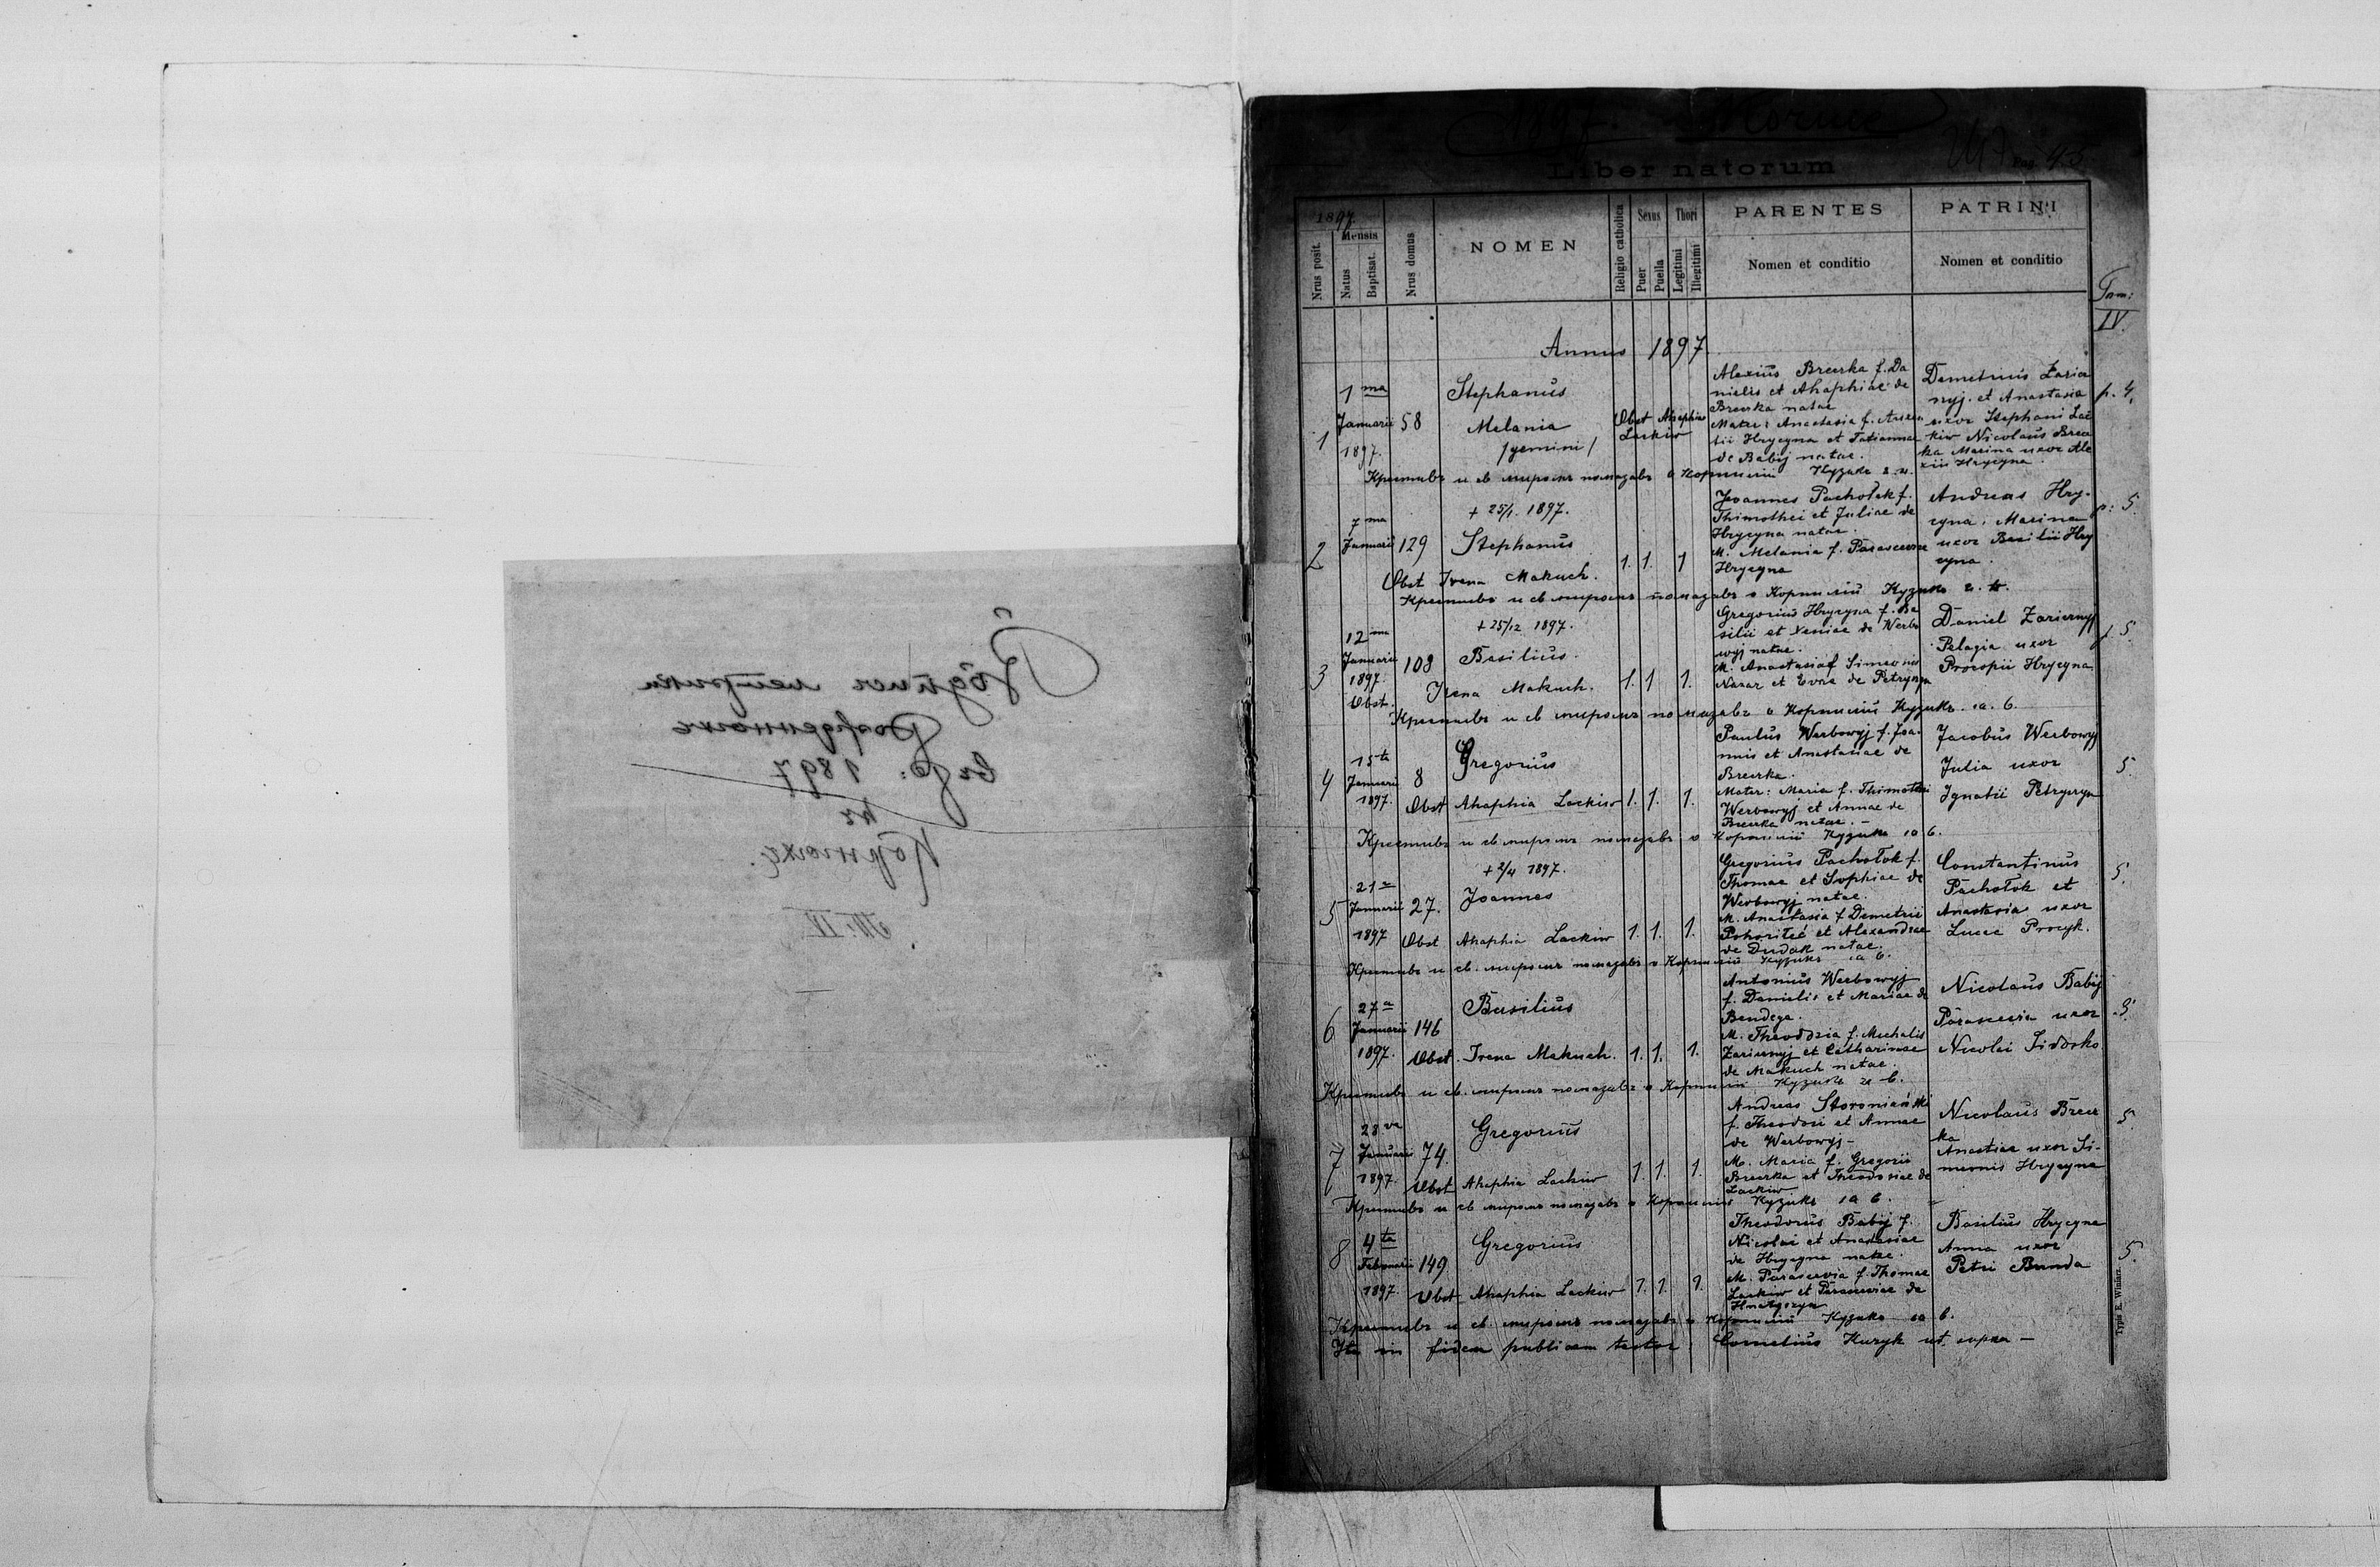 1897. Kornie
Liber natorum
247 Pag. 45.
1897
Mensis
Nrus posit.
Natus
Baptisat.
Nrus domus
NOMEN
Religio catholica
Sexus
Puer
Puella
Thori
Legitimi
Illegitimi
PARENTES
Nomen et conditio
PATRINI
Nomen et conditio
Tom: IV.
Annus 1897
1
1ma Januarii 1897.
58
Stephanus
Melania
/gemini/
Obst Ahaphia Lackiw
Alexius Brecrka f. Da
nielis et Ahaphiae de
Brecrka natae
Mater: Anastasia f.
Hrycyna et Tatianna
de Babij natae.
Demetrius
nyj. et Anastasia
uxor Stephani Lac
kiw Nicolaus Brecr
ka Marina uxor Ale
xii Hrycyna
p. 4,
Крестивъ и св. миромъ помазавъ Корнилій Кузикъ
2
7ma Januarii
129
+ 25/1. 1897.
Stephanus
1. 1. 1
Obst Irena Makuch.
Joannes Pachołok f.
Thimothei et Juliae de
Hrycyna natae.
M. Melania f. Parasceviae
Hrycyna
Andreas Hry-
cyna, Marina
uxor Basilii Hry
cyna.
p: 5.
Крестивъ и св. миромъ помазавъ Корнилій Кузикъ
3
12ma Januarii 1897.
108
+ 25/12 1897.
Basilius.
Obst. Irena Makuch.
1. 1 1.
Gregorius Hrycyna f. Ba
silii et Xeniae de Werbo
wyj natae.
M. Anastasia f. Simeonis
Nazar et Evae de Petryszyn
Daniel Zaricznyj
Pelagia uxor
Procopii Hrycyna
p 5.
Крестивъ и св. миромъ помазавъ Корнилій Кузикъ
4
15ta Januarii 1897.
8
Gregorius
Obst Ahaphia Lackiw
1. 1. 1.
Paulus Werbowyj f. Joa-
nnis et Anastasiae de
Brecrka.
Mater: Maria f. Thimothei
Werbowyj et Annae de
Brecrka natae. -
Jacobus Werbowyj
Julia uxor
Ignatii Petryszyn
5.
Крестивъ и св. миромъ помазавъ Корнилій Кузикъ
5
21a Januarii 1897
27.
+ 2/4 1897.
Joannes
Obst Ahaphia Lackiw
1. 1. 1.
Gregorius Pachołok f.
Thomae et Sophiae de
Werbowyj natae.
M. Anastasia f Demetrii
et Alexandrae
de Dudak natae.
Constantinus
Pachołok et
Anastasia uxor
Lucae Procyk.
5.
Крестивъ и св. миромъ помазавъ Корнилій Кузикъ
6
27a Januarii 1897.
146
Basilius
Obst. Irena Makuch.
1. 1. 1.
Antonius Werbowyj
f. Danielis et Mariae de
Bendyga.
M. Theodozia f. Michalis
Zaricznyj et Catharinae
de Makuch natae.
Nicolaus Babij
Parascevia uxor
Nicolai Sidorko
5.
Крестивъ и св. миромъ помазавъ Корнилій Кузикъ
7
28va Januarii 1897.
74.
Gregorius
Obst Ahaphia Lackiw
1. 1. 1.
Andreas Storoniański
f. Theodori et Annae
de Werbowyj -
M. Maria f. Gregorii
Brecrka et Theodosiae de
Lackiw.
Nicolaus Brecr
ka
Anastiae uxor Si-
meonis Hrycyna
5.
Крестивъ и св. миромъ помазавъ Корнилій Кузикъ
8
4ta Februarii 1897.
149
Gregorius
Obst Ahaphia Lackiw
1. 1. 1.
Theodorus Babij f.
Nicolai et Anastasiae
de Hrycyna natae.
M. Parascevia f. Thomae
Lackiw et Parasceviae de
Hnatyszyn
Basilius Hrycyna
Anna uxor
Petri Bunda
5.
Крестивъ и св. миромъ помазавъ Корнилій Кузикъ
Ita in fidem publicam testor: Cornelius Kuzyk ut supra -
Typis E. Winiarz.
метрика
рожденныхъ
1897
въ
T. IV